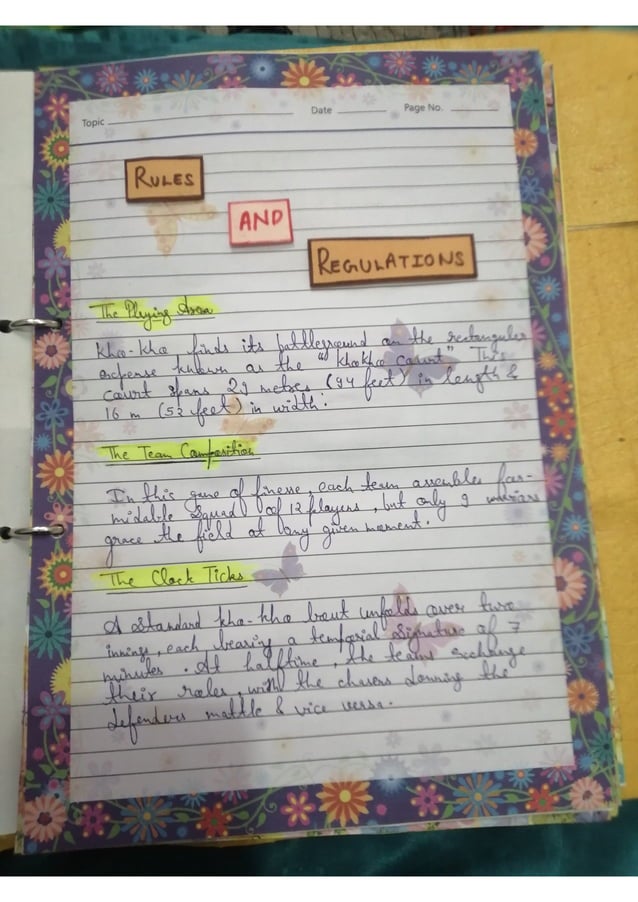 Topic
Date
Page No.
RULES
AND
REGULATIONS
The Plying Area
Kho-kho finds its battleground on the rectangular
expense known as the "khokho court" This
court spans 29 metres (94 feet) in length &
16 m (52 feet) in width.
The Team Composition
In this game of finesse, each team assembles for-
midable squad of 12 players, but only 9 warriors
grace the field at any given moment.
The Clock Ticks
A standard kho-kho bout unfolds over two
innings, each bearing a temporal signature of 7
minutes. At halftime, the teams exchange
their roles, with the chasers donning the
defenders mattle & vice versa.